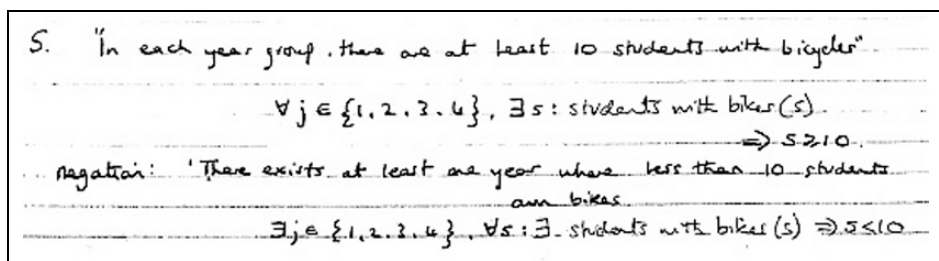 5. "In each year group, there are at least 10 students with bicycles"
∀ j ∈ {1, 2, 3, 4}, ∃ s : students with bikes (s)
⇒ s ≥ 10.
negation: 'There exists at least one year where less than 10 students
own bikes.
∃ j ∈ {1, 2, 3, 4}, ∀ s : ∃ students with bikes (s) ⇒ s < 10